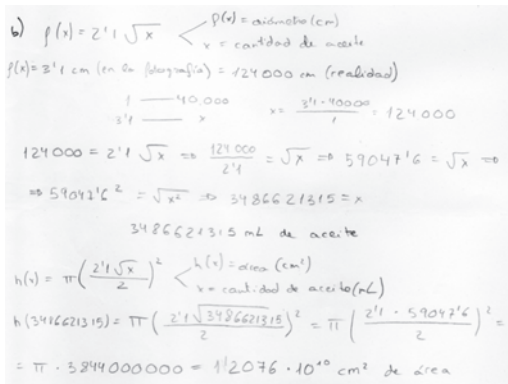 b) f(x) = 2'1 √x f(x) = diámetro (cm)
x = cantidad de aceite
f(x) = 3'1 cm (en la fotografía) = 124000 cm (realidad)
1 —— 40.000 x = 3'1 · 40000 / 1 = 124.000
3'1 —— x
124000 = 2'1 √x ⇒ 124.000 / 2'1 = √x ⇒ 59047'6 = √x ⇒
⇒ 59047'6² = √x² ⇒ 3486621315 = x
3486621315 mL de aceite
h(x) = π (2'1√x / 2)² h(x) = área (cm²)
x = cantidad de aceite (mL)
h(3486621315) = π (2'1 √3486621315 / 2)² = π (2'1 · 59047'6 / 2)² =
= π · 3844000000 = 1'2076 · 10¹⁰ cm² de área